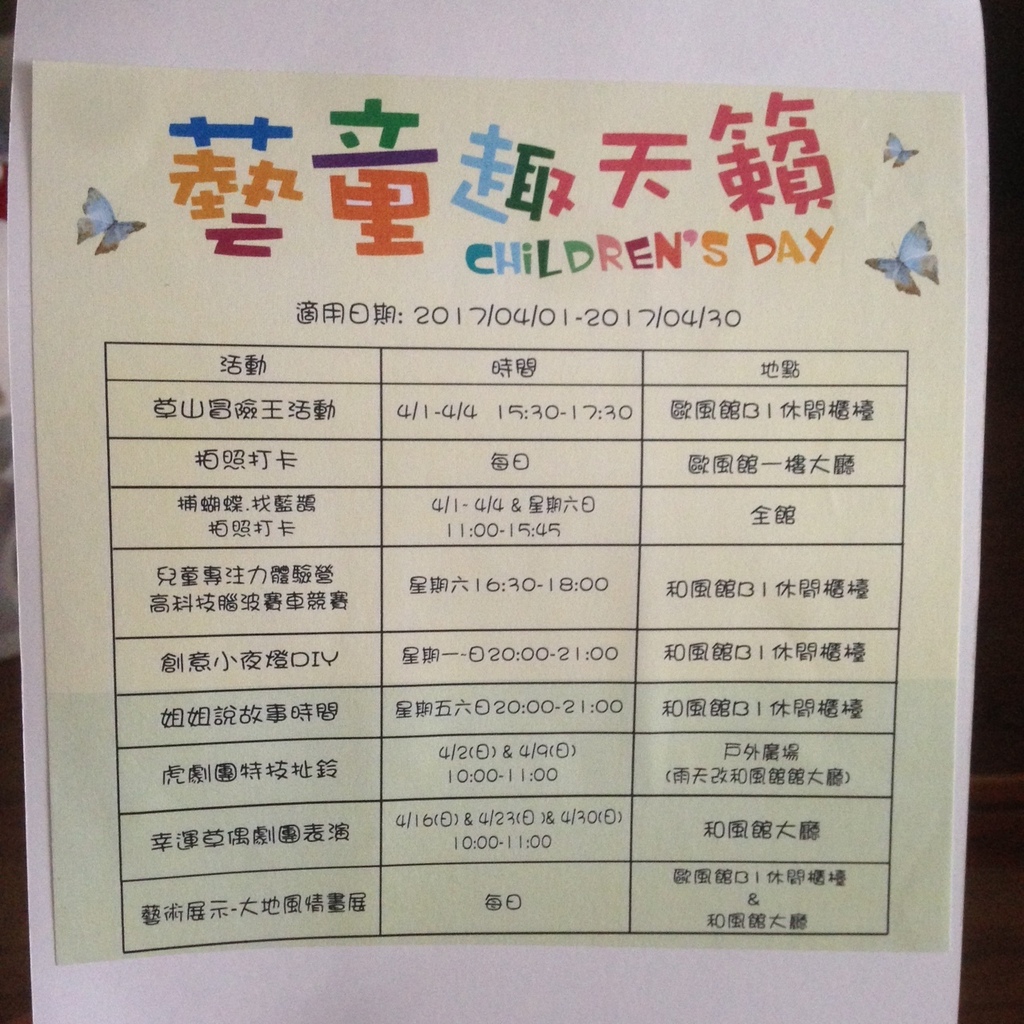 藝童趣天籟
CHILDREN'S DAY
適用日期: 2017/04/01-2017/04/30
活動 時間 地點
草山冒險王活動 4/1-4/4 15:30-17:30 歐風館B1休閒櫃檯
拍照打卡 每日 歐風館一樓大廳
捕蝴蝶.找藍鵲
拍照打卡 4/1- 4/4 & 星期六日
11:00-15:45 全館
兒童專注力體驗營
高科技腦波賽車競賽 星期六16:30-18:00 和風館B1休閒櫃檯
創意小夜燈DIY 星期一~日20:00-21:00 和風館B1休閒櫃檯
姐姐說故事時間 星期五六日20:00-21:00 和風館B1休閒櫃檯
虎劇團特技扯鈴 4/2(日) & 4/9(日)
10:00-11:00 戶外廣場
(雨天改和風館館大廳)
幸運草偶劇團表演 4/16(日) & 4/23(日 )& 4/30(日)
10:00-11:00 和風館大廳
藝術展示-大地風情畫展 每日 歐風館B1休閒櫃檯
&
和風館大廳